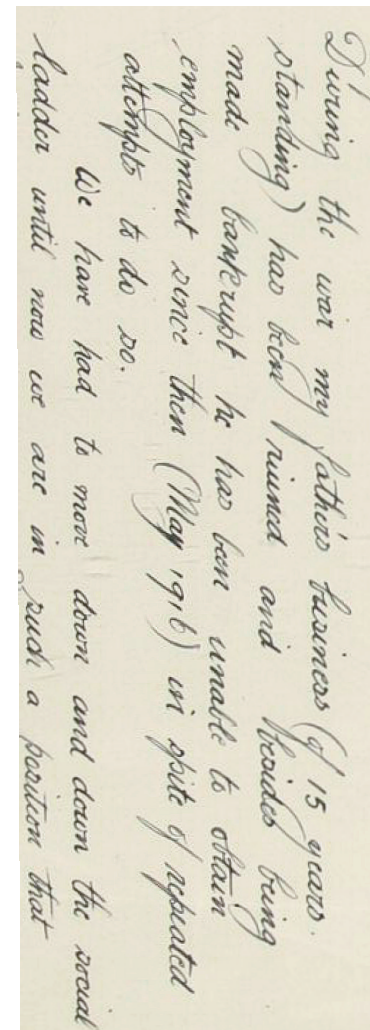 During the war my father's business (of 15 years.
standing) has been ruined and besides being
made bankrupt he has been unable to obtain
employment since then (May 1916) in spite of repeated
attempts to do so.
We have had to move down and down the social
ladder until now we are in such a position that